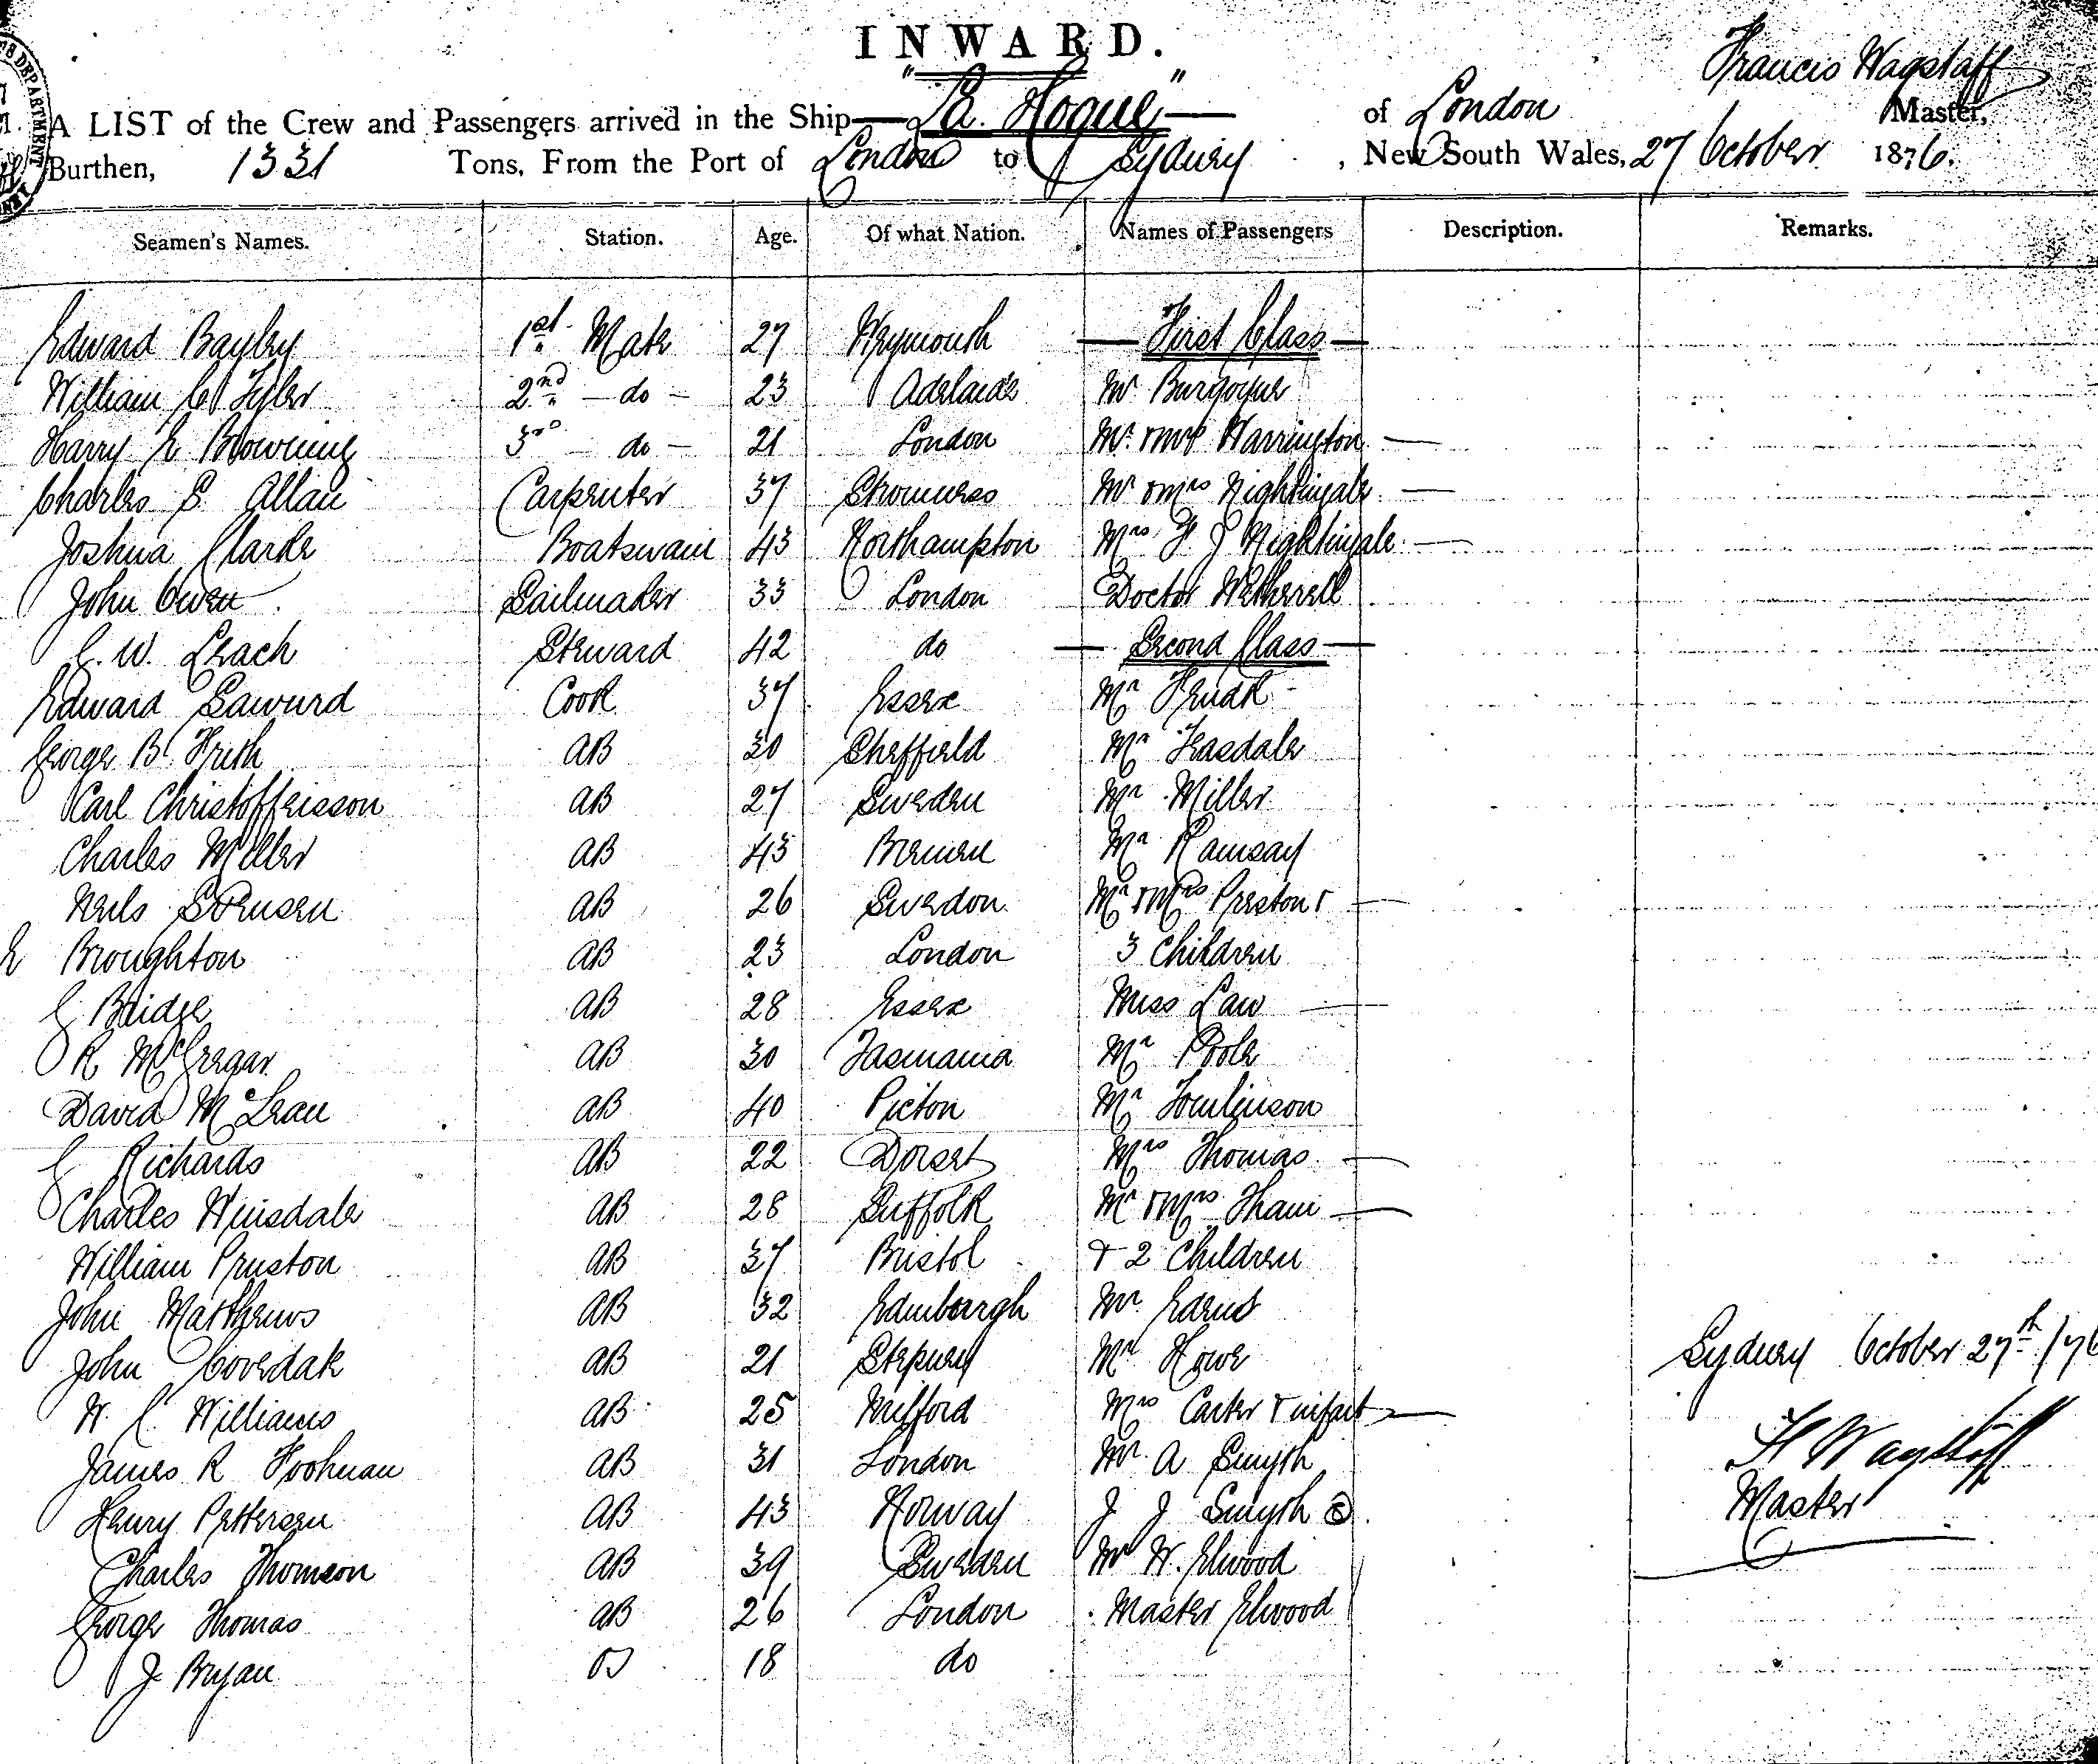 INWARD.
Francis Wagstaff
A LIST of the Crew and Passengers arrived in the Ship "La Hogue" of London Master,
Burthen, 1331 Tons, From the Port of London to Sydney, New South Wales, 27 October 1876.
Seamen's Names. Station. Age. Of what Nation. Names of Passengers Description. Remarks.
Edward Bayley 1st Mate 27 Weymouth First Class
William C Tyler 2nd do 23 Adelaide Mr Burgoyne
Harry E Browning 3rd do 21 London Mr & Mrs Warrington
Charles S Allan Carpenter 37 Stromness Mr & Mrs Nightingale
Joshua Clarke Boatswain 43 Northampton Mrs F J Nightingale
John Owen Sailmaker 33 London Doctor Wetherell
C. W. Leach Steward 42 do Second Class
Edward Cook 37 Essex Mr
George B. Frith AB 30 Sheffield Mr Teasdale
Karl Christoffersson AB 27 Sweden Mr Miller
Charles Miller AB 43 Bremen Mr Ramsay
Neils Sorensen AB 26 Swedon Mr & Mrs Preston &
E Broughton AB 23 London 3 Children
C Bridge AB 28 Essex Miss Law
R McGregar AB 30 Tasmania Mr Poole
David McLean AB 40 Picton Mr Tomlinson
C Richards AB 22 Dorset Mrs Thomas
Charles AB 28 Suffolk Mr & Mrs
William Pruston AB 37 Bristol & 2 Children
John Matthews AB 32 Edinborrgh Mr
John Coverdale AB 21 Stepney Mr Howe
Sydney October 27th /76
W. C. Williams AB 25 Milford Mrs Carter & infant
James R AB 31 London Mr A Smyth
H Wagstaff
Henry Pettersen AB 43 Norway J J Smyth
Master
Charles Thomson AB 39 Sweden Mr W. Elwood
George Thomas AB 26 London Master Elwood
J Bryan OS 18 do